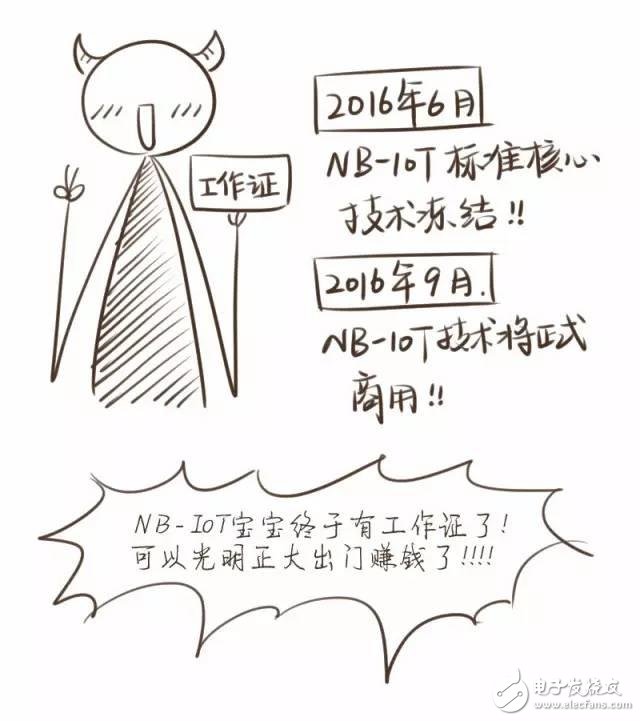 工作证
2016年6月
NB-IoT标准核心
技术冻结!!
2016年9月.
NB-IoT技术将正式
商用!!
NB-IoT宝宝终于有工作证了!
可以光明正大出门赚钱了!!!!
电子发烧友
www.elecfans.com